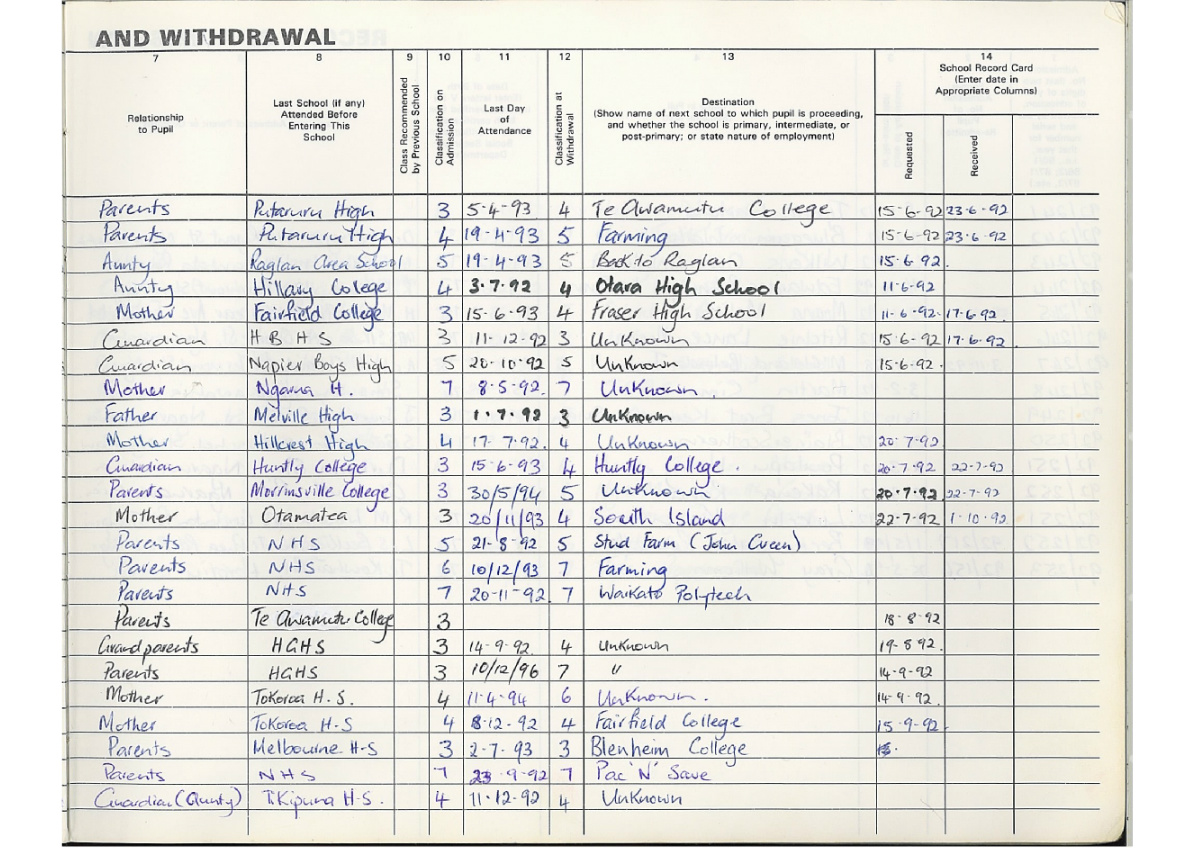 AND WITHDRAWAL
7 8 9 10 11 12 13 14
Relationship to Pupil
Last School (if any) Attended Before Entering This School
Class Recommended by Previous School
Classification on Admission
Last Day of Attendance
Classification at Withdrawal
Destination (Show name of next school to which pupil is proceeding, and whether the school is primary, intermediate, or post-primary; or state nature of employment)
School Record Card (Enter date in Appropriate Columns)
Requested
Received
Parents Putaruru High 3 5-4-93 4 Te Awamutu College 15-6-92 23-6-92
Parents Putaruru High 4 19-4-93 5 Farming 15-6-92 23-6-92
Aunty Raglan Area School 5 19-4-93 5 Back to Raglan 15-6-92.
Aunty Hillary College 4 3.7.92 4 Otara High School 11-6-92
Mother Fairfield College 3 15-6-93 4 Fraser High School 11-6-92. 17-6-92.
Guardian H B H S 3 11-12-92 3 UnKnown 15-6-92 17-6-92.
Guardian Napier Boys High 5 20-10-92 5 UnKnown 15-6-92.
Mother Ngarna H. 7 8-5-92. 7 UnKnown.
Father Melville High 3 1.7.92 3 UnKnown
Mother Hillcrest High 4 17-7-92. 4 UnKnown 20-7-92
Guardian Huntly College 3 15-6-93 4 Huntly College. 20-7-92 22-7-92
Parents Morrinsville College 3 30/5/94 5 UnKnown 20.7.92 22-7-92
Mother Otamatea 3 20/11/93 4 South Island 22-7-92 1-10-92
Parents NHS 5 21-8-92 5 Stud Farm (John Green)
Parents NHS 6 10/12/93 7 Farming
Parents NHS 7 20-11-92. 7 Waikato Polytech
Parents Te Awamutu College 3 18-8-92
Grandparents HGHS 3 14-9-92. 4 UnKnown 19-8 92.
Parents HGHS 3 10/12/96 7 " 14-9-92
Mother Tokoroa H.S. 4 11-4-94 6 UnKnown. 14-9-92.
Mother Tokoroa H-S 4 8-12-92 4 Fairfield College 15-9-92
Parents Melbourne H-S 3 2-7-93 3 Blenheim College
Parents NHS 7 23-9-92 7 Pac 'N' Save
Guardian (Aunty) T.Kipuna H-S. 4 11-12-92 4 UnKnown